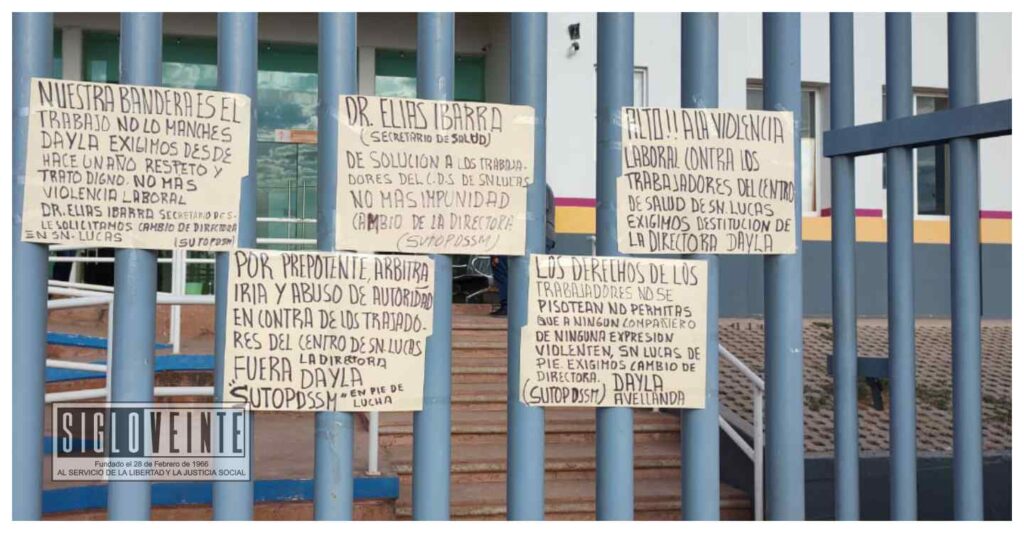 NUESTRA BANDERA ES EL
TRABAJO NO LO MANCHES
DAYLA EXIGIMOS DESDE
HACE UN AÑO RESPETO Y
TRATO DIGNO. NO MAS
VIOLENCIA LABORAL
DR. ELIAS IBARRA SECRETARIO DE S-
LE SOLICITAMOS CAMBIO DE DIRECTORA
EN SN. LUCAS (SUTOPDSSM)
DR. ELIAS IBARRA
(SECRETARIO DE SALUD)
DE SOLUCIÓN A LOS TRABAJA-
DORES DEL C.D.S DE SN. LUCAS
NO MAS IMPUNIDAD
CAMBIO DE LA DIRECTORA
(SUTOPDSSM)
ALTO!! A LA VIOLENCIA
LABORAL CONTRA LOS
TRABAJADORES DEL CENTRO
DE SALUD DE SN. LUCAS
EXIGIMOS DESTITUCION DE
LA DIRECTORA DAYLA
POR PREPOTENTE ARBITRA
IRIA Y ABUSO DE AUTORIDAD
EN CONTRA DE LOS TRAJADO-
RES DEL CENTRO DE SN. LUCAS
FUERA LA DIRECTORA
DAYLA
"SUTOPDSSM" EN PIE DE
LUCHA
LOS DERECHOS DE LOS
TRABAJADORES NO SE
PISOTEAN NO PERMITAS
QUE A NINGUN COMPAÑERO
DE NINGUNA EXPRESION
VIOLENTEN, SN LUCAS DE
PIE. EXIGIMOS CAMBIO DE
DIRECTORA. DAYLA
(SUTOPDSSM) AVELLANDA
SIGLOVEINTE
Fundado el 28 de Febrero de 1966
AL SERVICIO DE LA LIBERTAD Y LA JUSTICIA SOCIAL